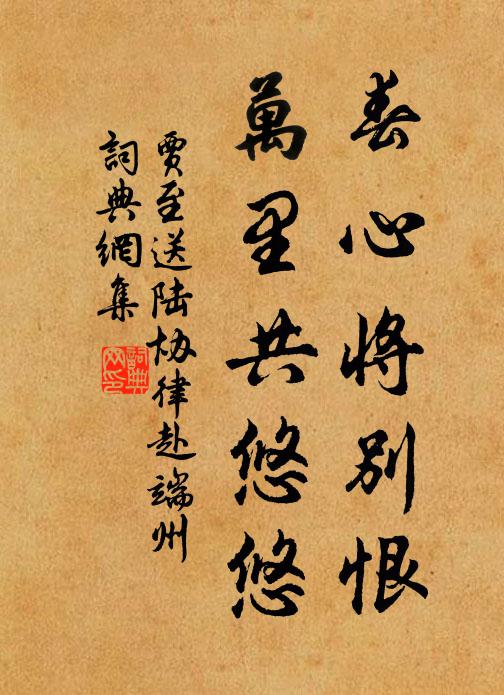 春心将別恨
萬里共悠悠
賈至送陆协律赴端州
詞典網集
詞典
网印